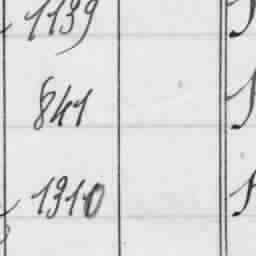 1139
841
1310